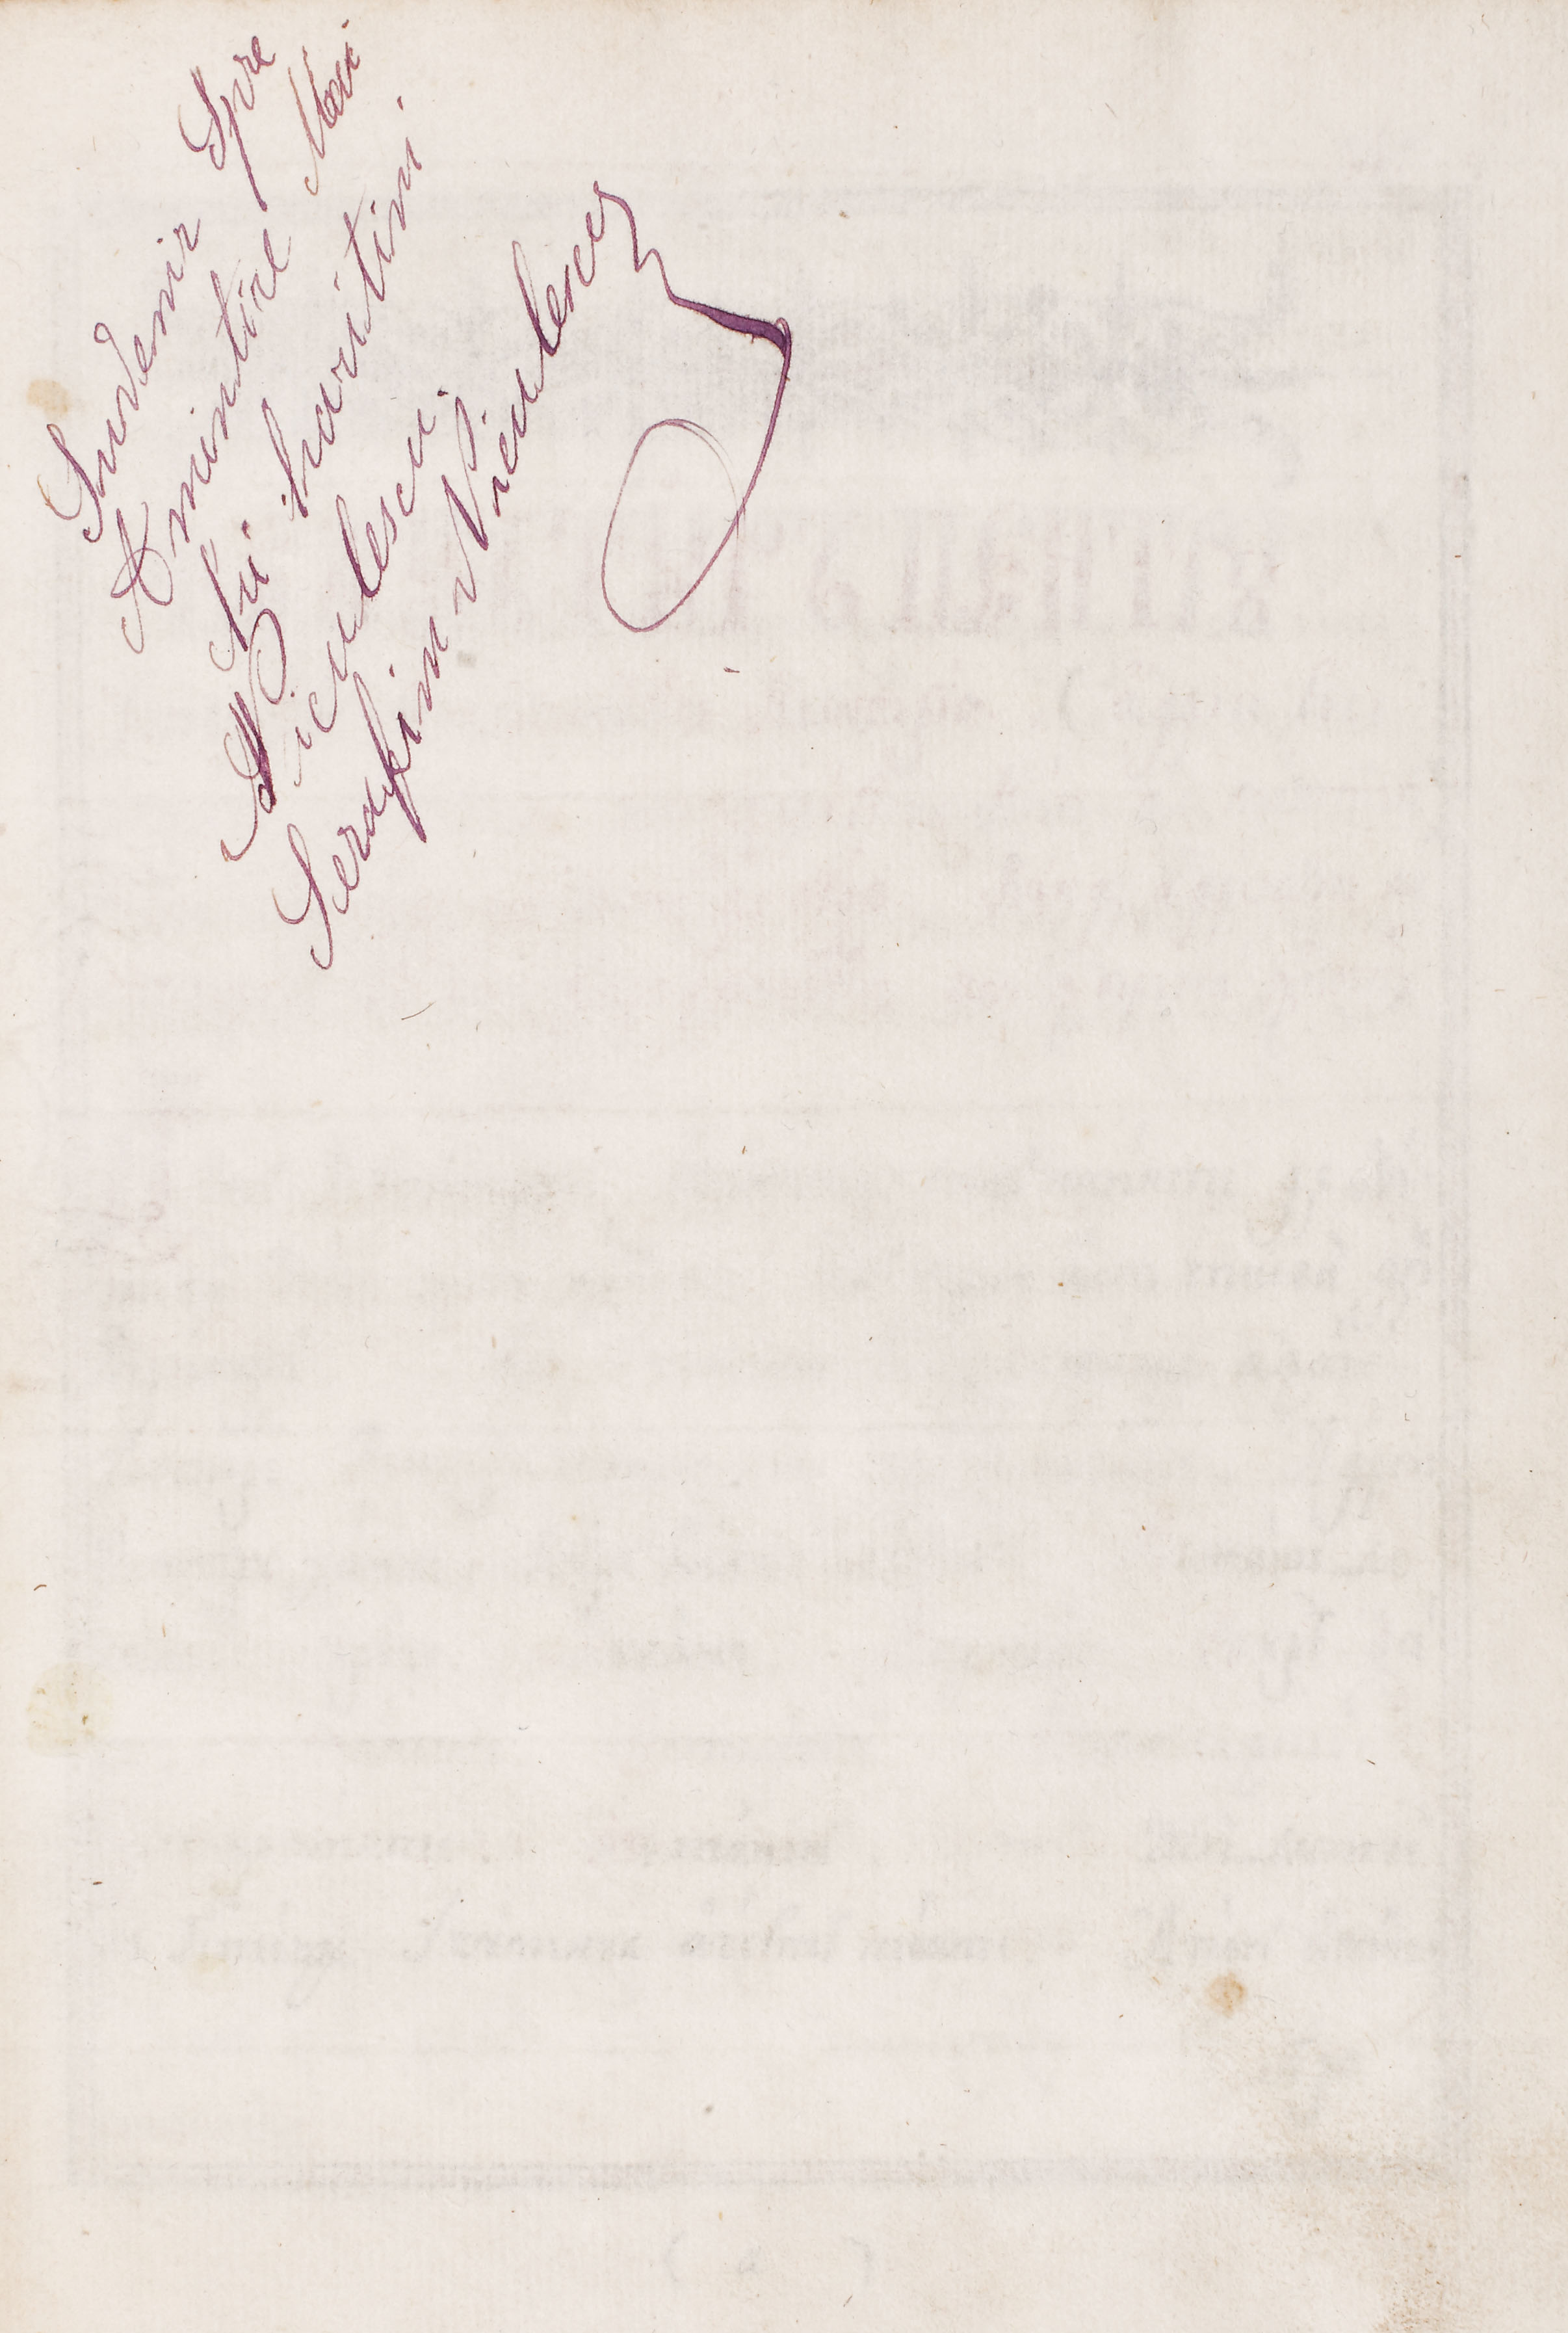 Suvenir Spre
Amintire Maii
Sii haritini
Niculescu.
Serafim Niculescu